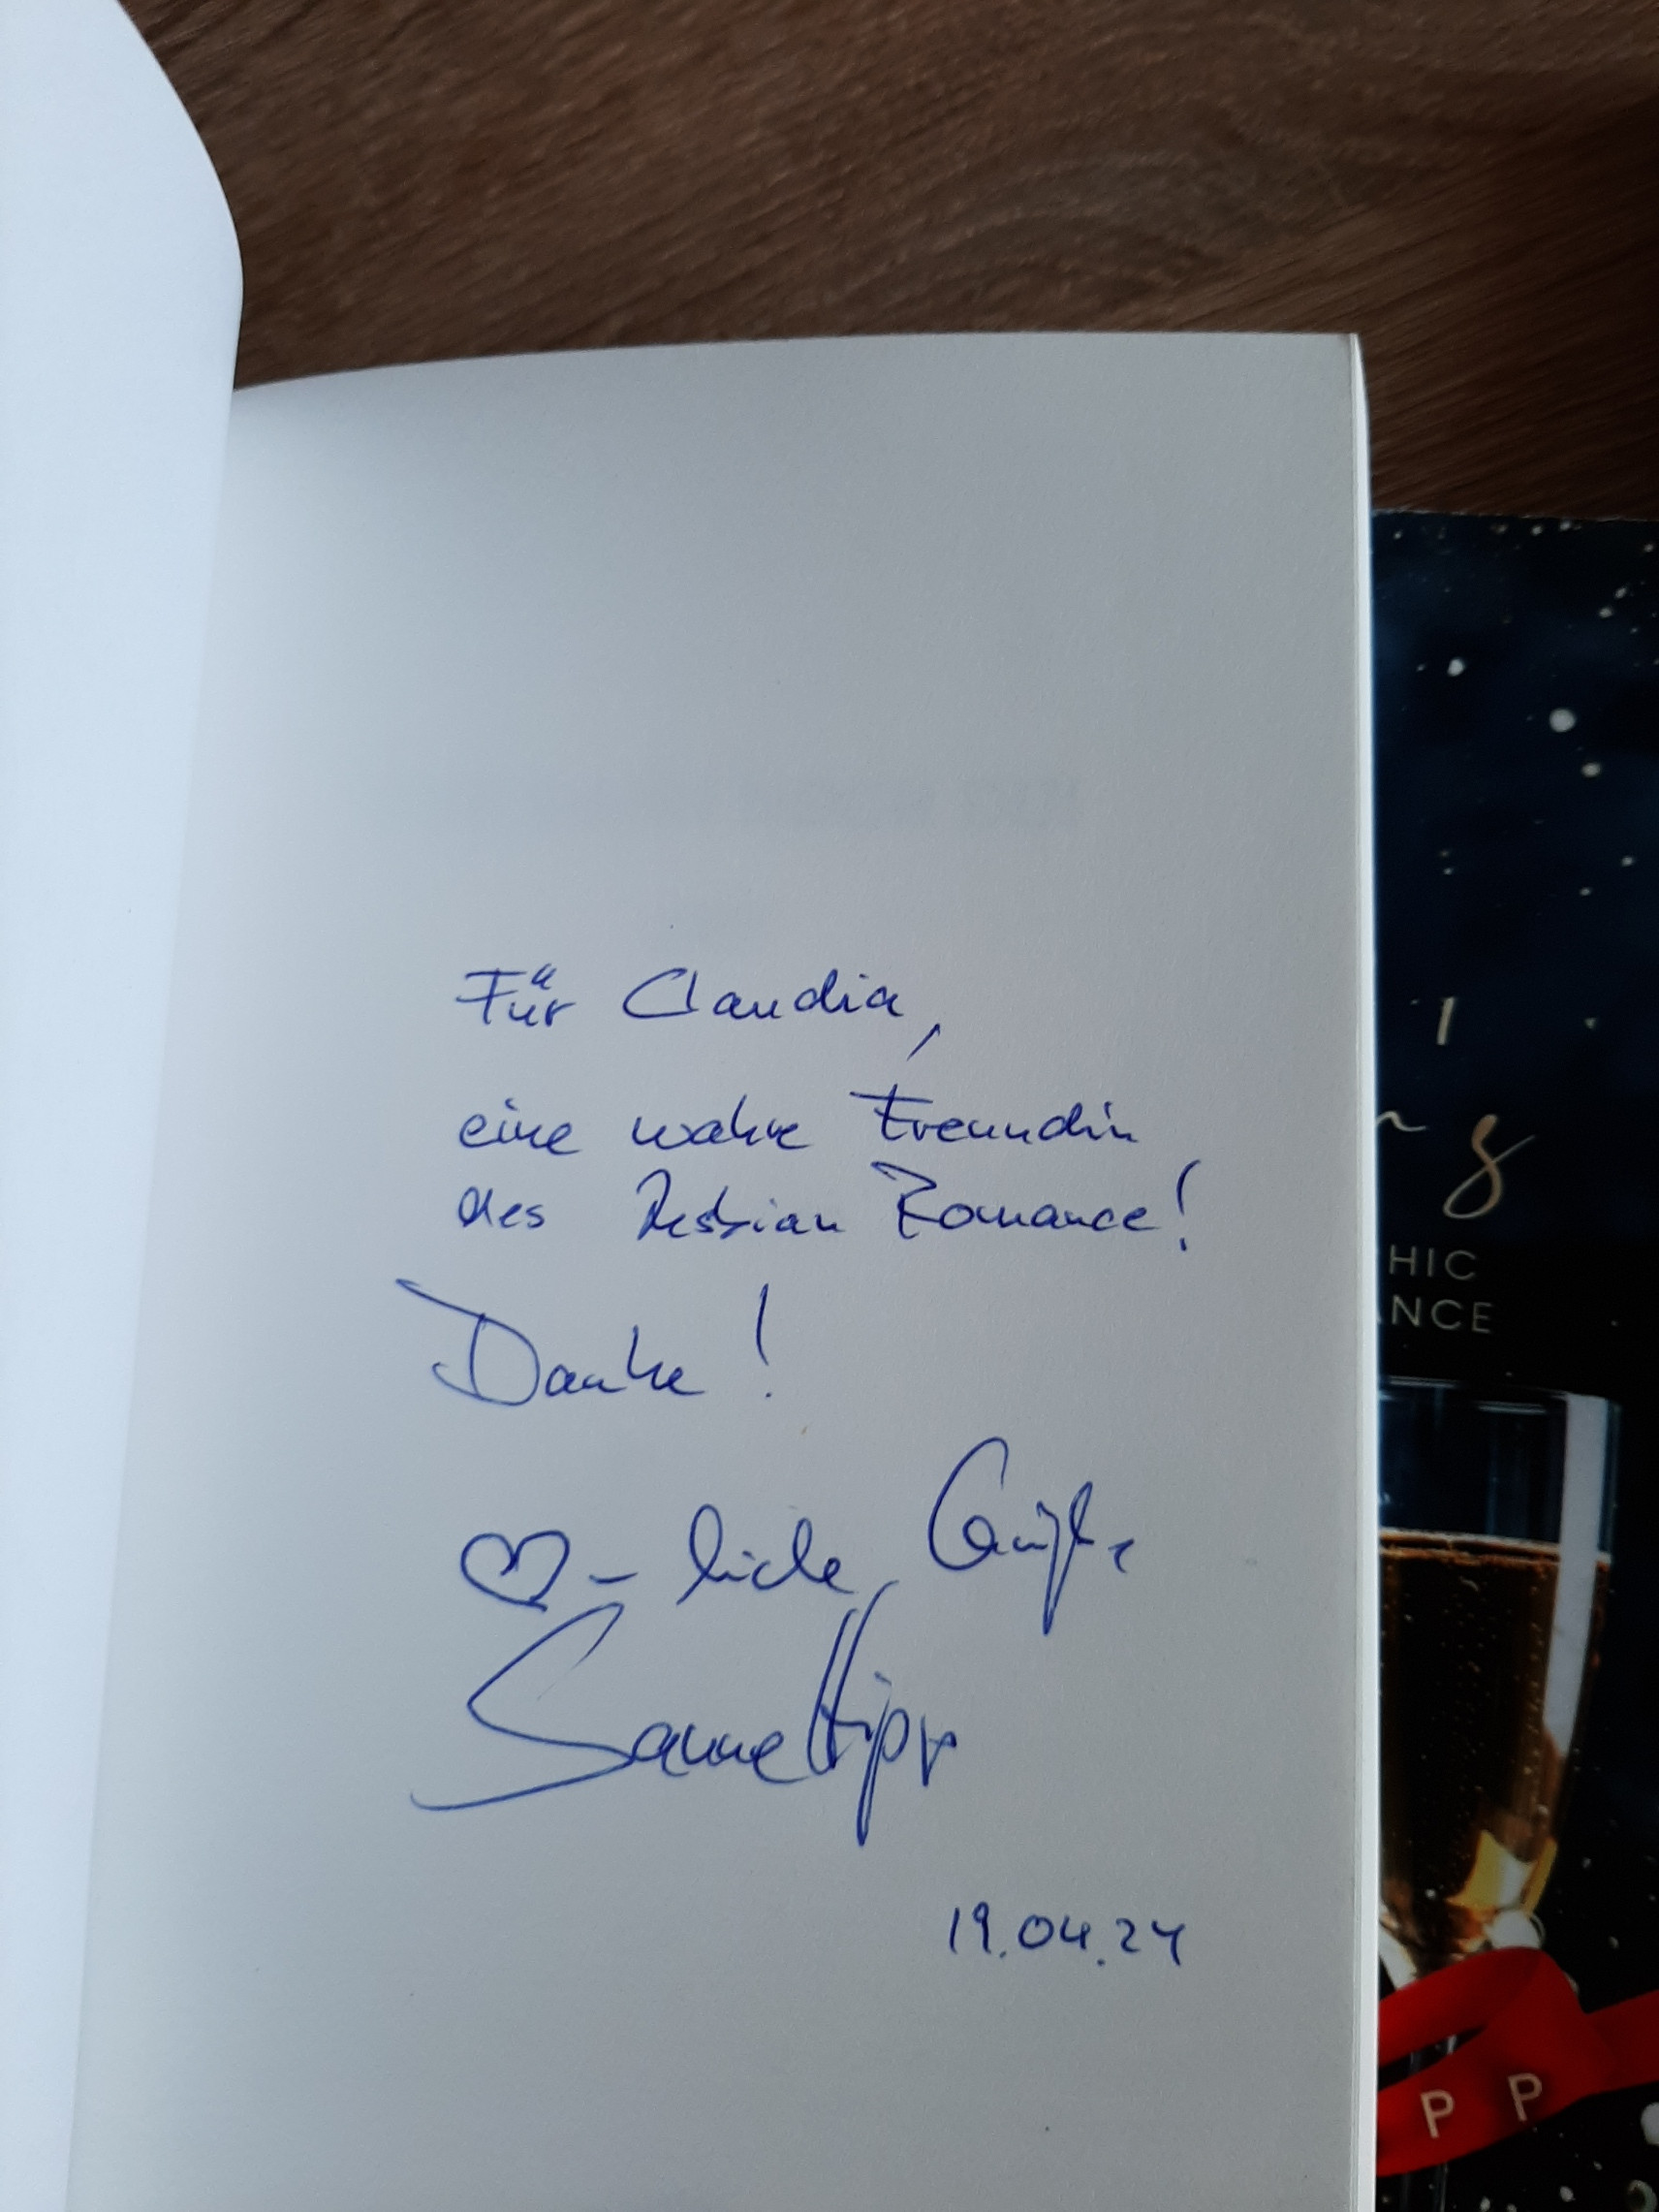 Für Claudia,
eine wahre Freundin
des Lesbian Romance!
Danke!
♡-liche Grüße
Sanne Hipp
19.04.24
HIC
NCE
PP